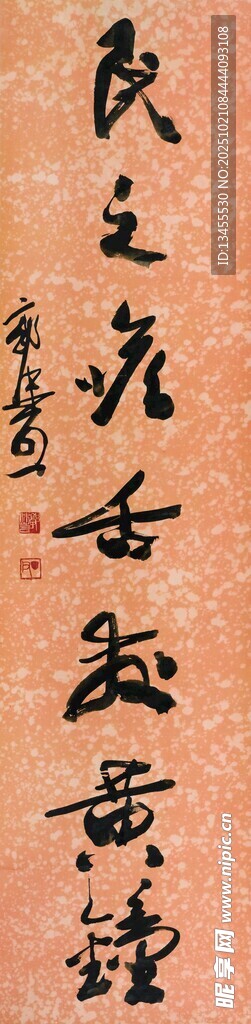 民之喉舌發黄鐘
ID:13455530 NO:20251021084444093108
昵享网 www.nipic.cn